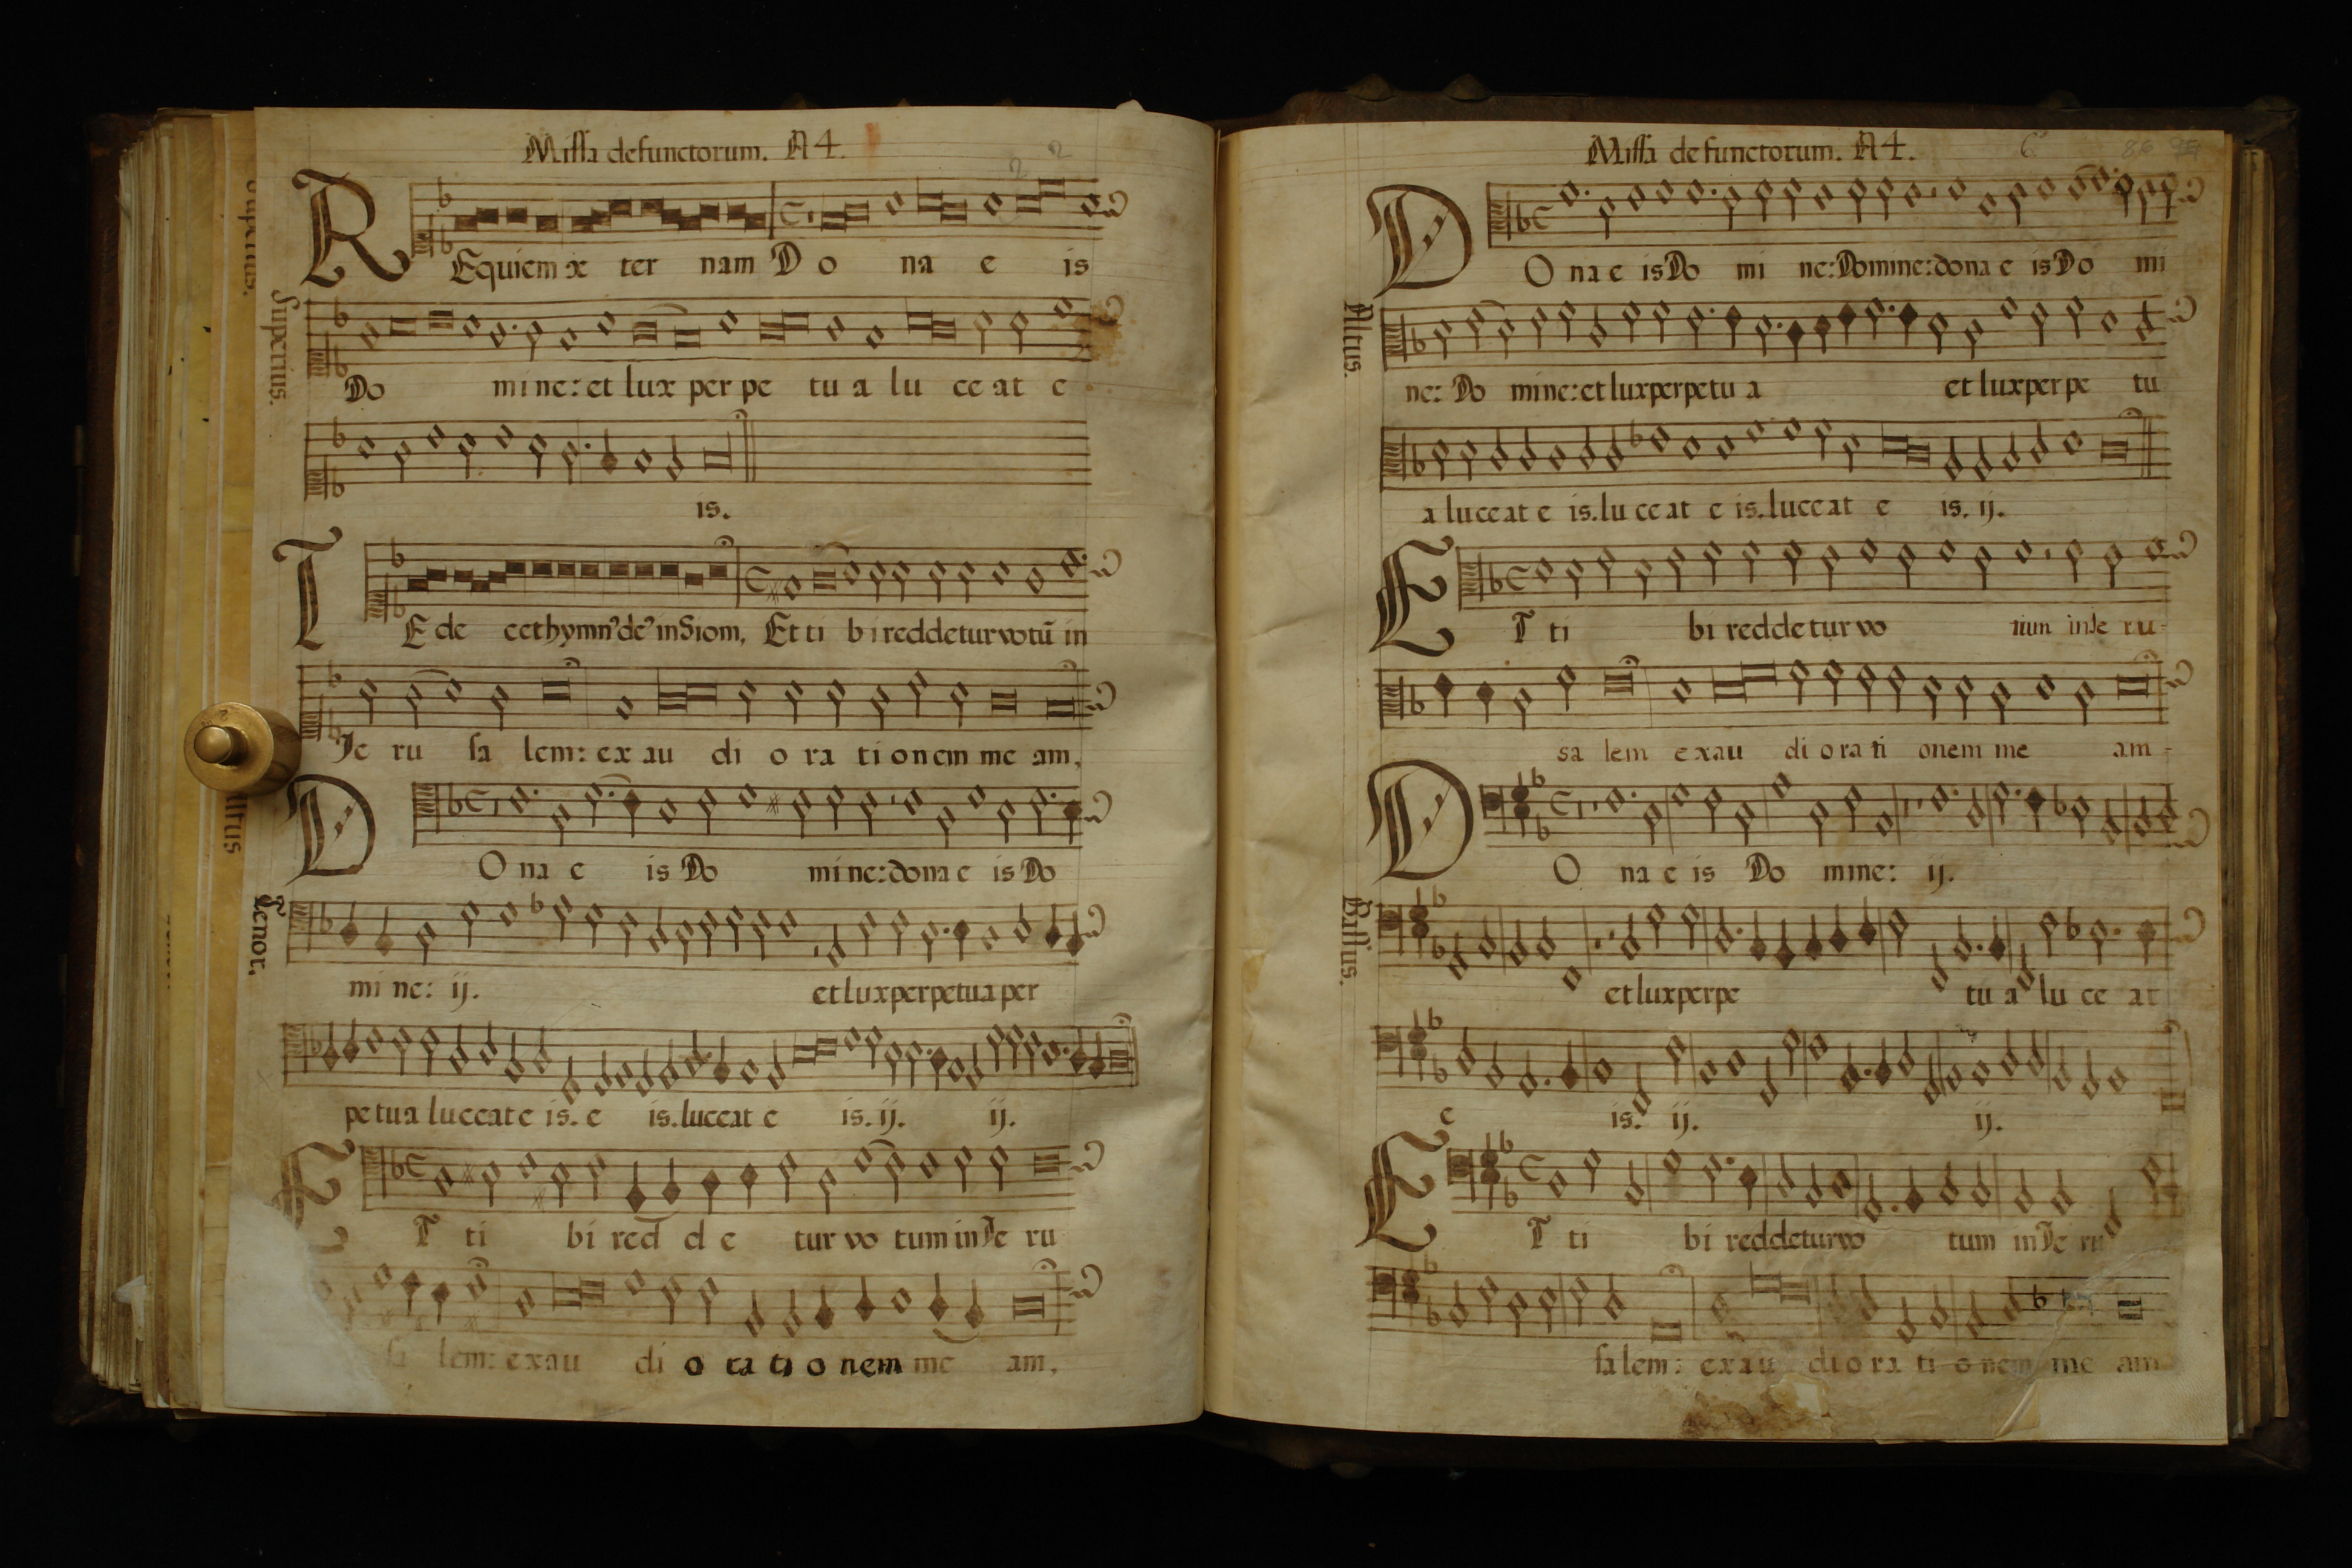 Missa defunctorum. A 4.
Superius.
REquiem æ ter nam Do na e is
Do mine: et lux per pe tu a lu ce at e
is.
TE de cet hymn⁹ de⁹ in Siom, Et ti bi reddetur votū in
Je ru sa lem: ex au di o ra ti onem me am,
Tenor.
DO na e is Do mi ne: dona e is Do
mi ne: ij. et lux perpetua per
petua luceat e is. e is. luceat e is. ij. ij.
ET ti bi red d e tur vo tum in Je ru
sa lem: exau di o ra ti o nem me am,
Missa defunctorum. A 4.
Altus.
DO na e is Do mi ne: Domine: dona e is Do mi
ne: Do mine: et lux perpetu a et lux per pe tu
a luceat e is. lu ce at e is. luceat e is. ij.
ET ti bi reddetur vo tum in Je ru-
sa lem exau di o ra ti onem me am-
Bassus.
DO na e is Do mine: ij.
et lux perpe tu a lu ce at
e is. ij. ij.
ET ti bi reddetur vo tum in Je ru
sa lem: exau di o ra ti o nem me am